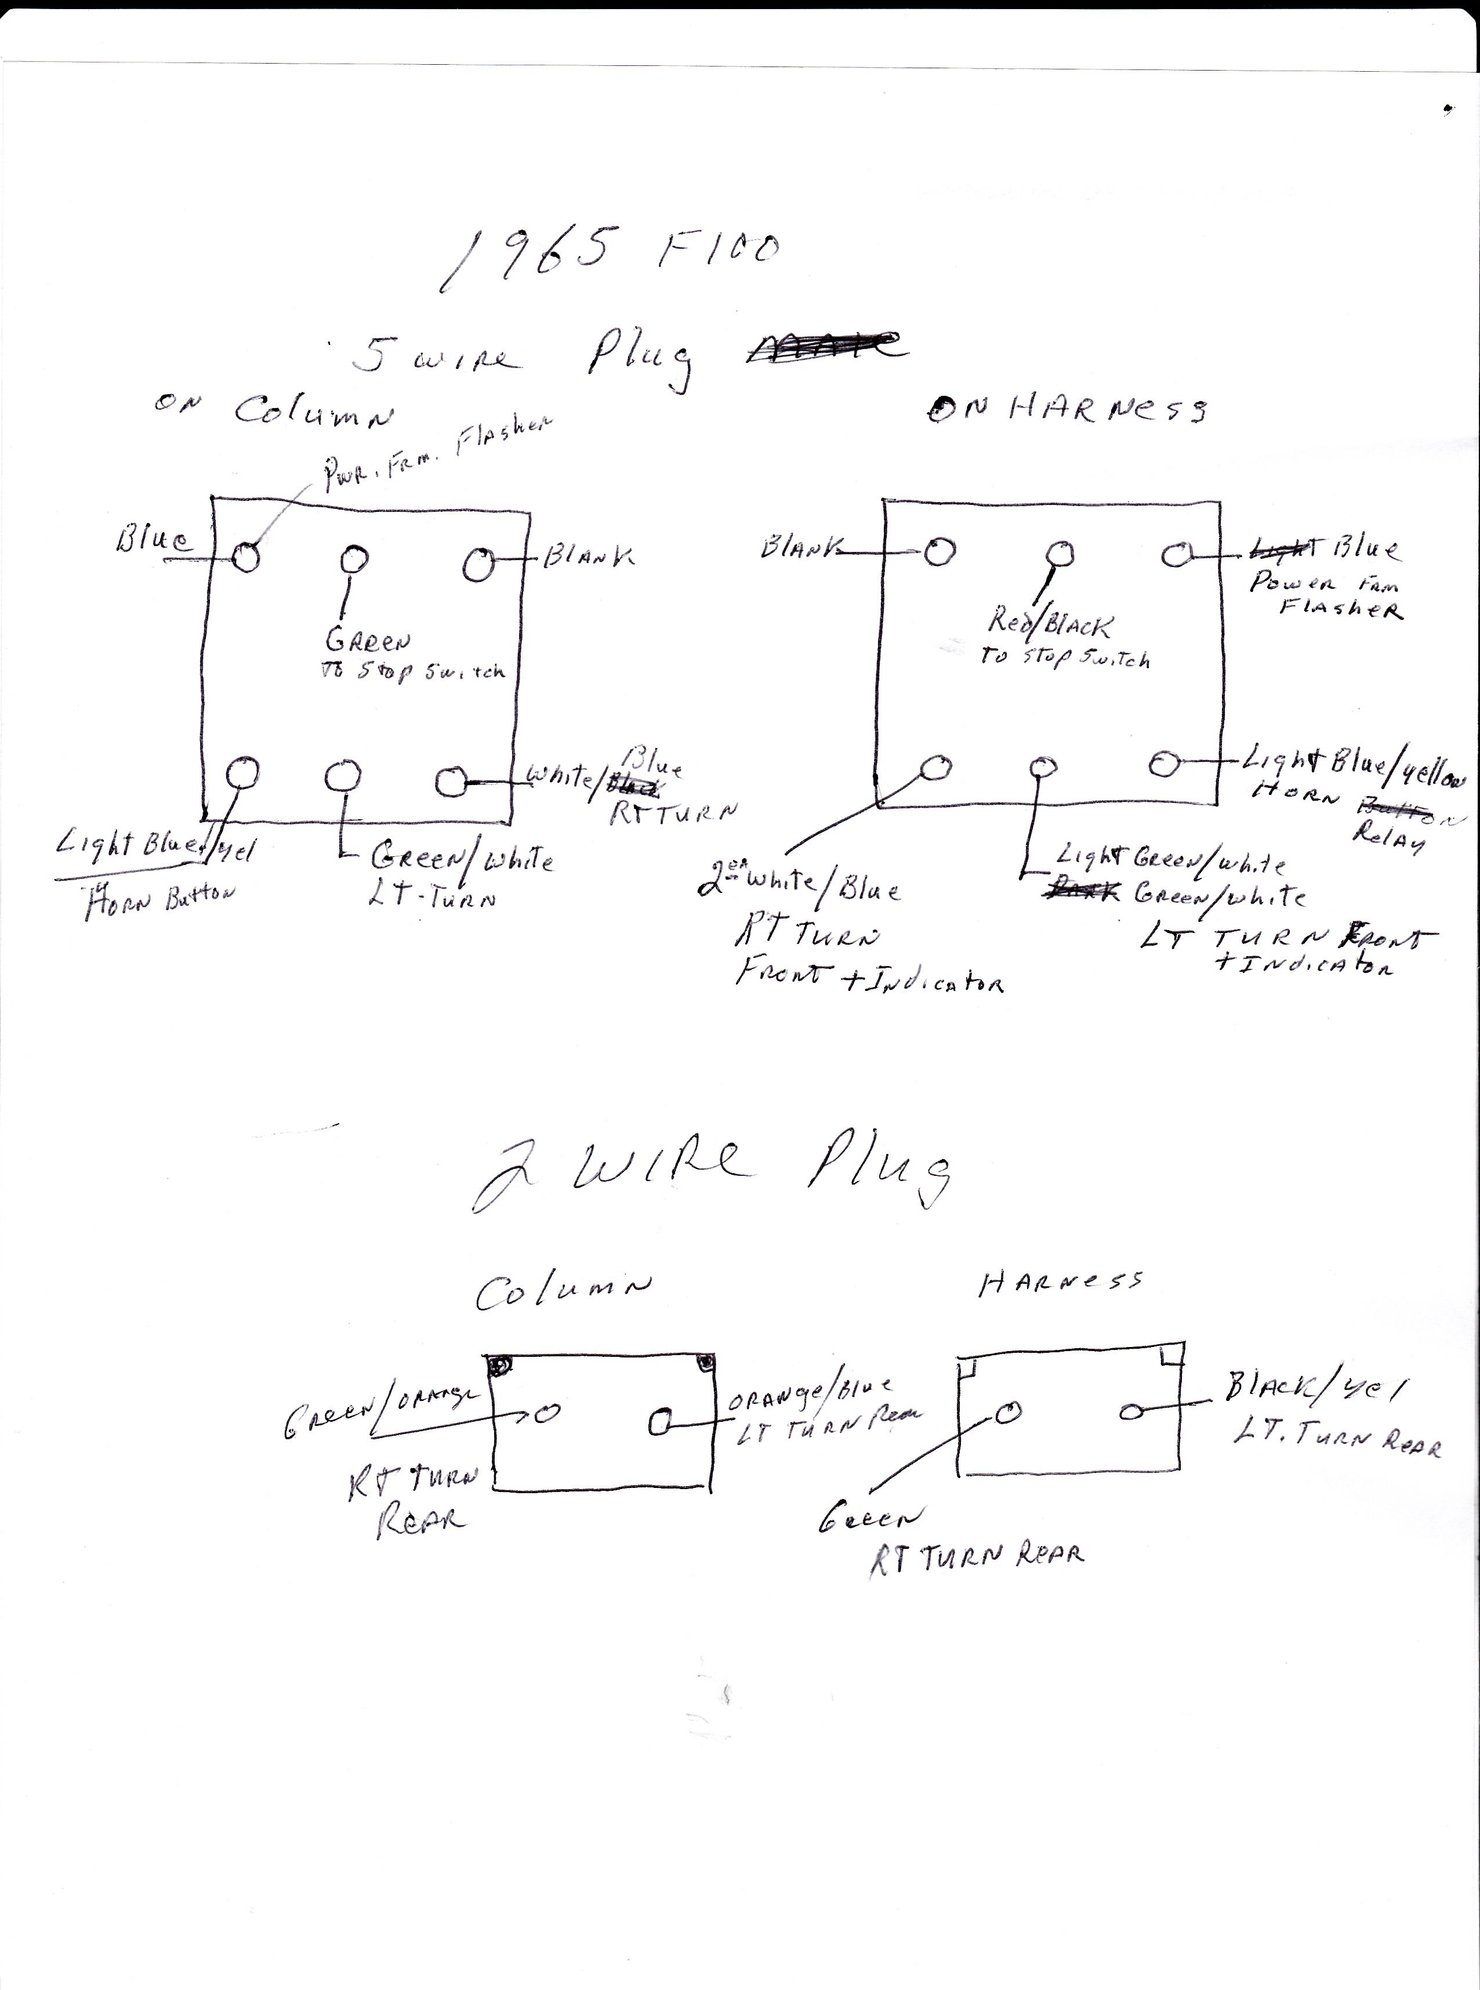 1965 F100
5 wire Plug
ON Column
ON HARNess
Pwr. Frm. Flasher
Blue
BLANK
GREEN
To Stop Switch
Light Blue/yel
Horn Button
GREEN/White
LT-TURN
White/Blue
RT TURN
BLANK
Blue
Power Frm
FLASHER
Red/BLACK
To Stop Switch
Light Blue/yellow
HORN
Relay
2 ea White/Blue
RT TURN
FRONT + INdicator
Light GREEN/white
GREEN/white
LT TURN FRONT
+ INdicator
2 WIRE Plug
Column
HARNess
GREEN/ORANge
RT TURN
REAR
ORANge/Blue
LT TURN Rear
Green
RT TURN REAR
BLACK/yel
LT. TURN REAR